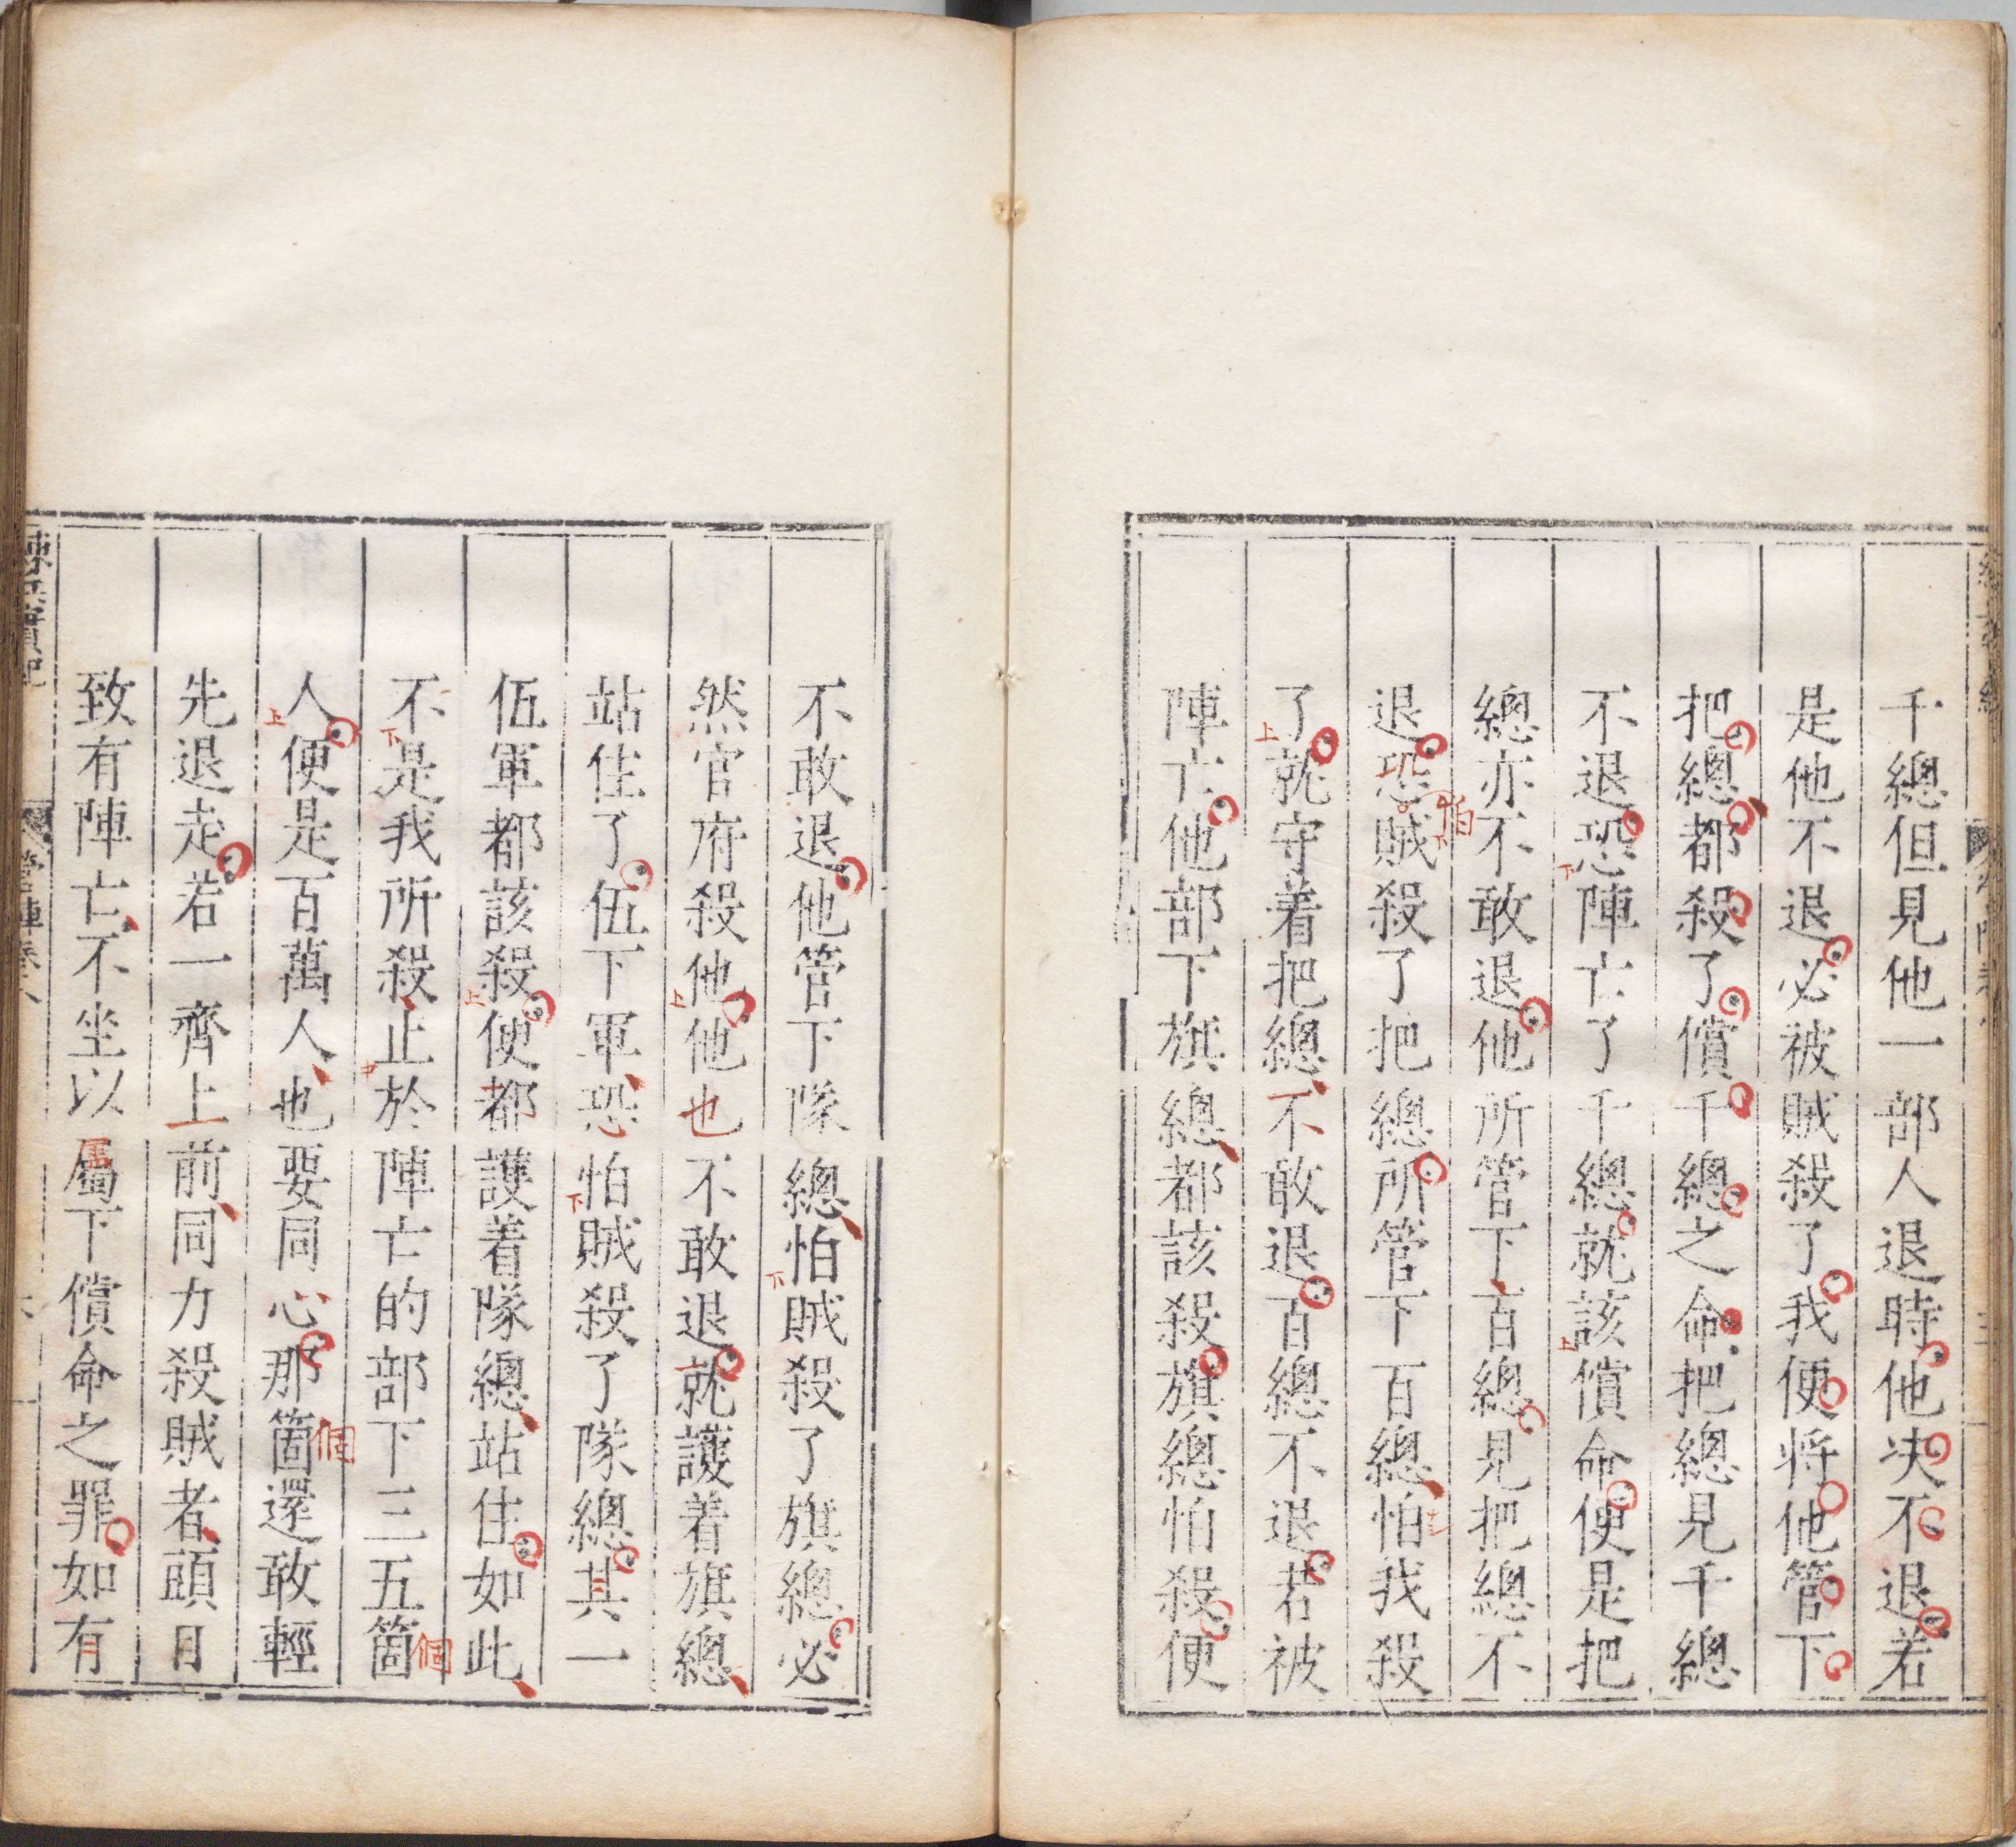 千總但見他一部人退時他决不退若
是他不退必被賊殺了我便将他管下
把總都殺了償千總之命把總見千總
不退恐陣亡了千總就該償命便是把
總亦不敢退他所管下百總見把總不
退恐賊殺了把總所管下百總怕我殺
怕
了就守着把總不敢退百總不退若被
陣亡他部下旗總都該殺旗總怕殺便
不敢退他管下隊總怕賊殺了旗總必
然官府殺他他也不敢退就護着旗總
站住了伍下軍恐怕賊殺了隊總其一
伍軍都該殺便都護着隊總站住如此
不是我所殺止於陣亡的部下三五箇
個
人便是百萬人也要同心那箇還敢輕
個
先退走若一齊上前同力殺賊者頭目
致有陣亡不坐以屬下償命之罪如有
練兵實紀